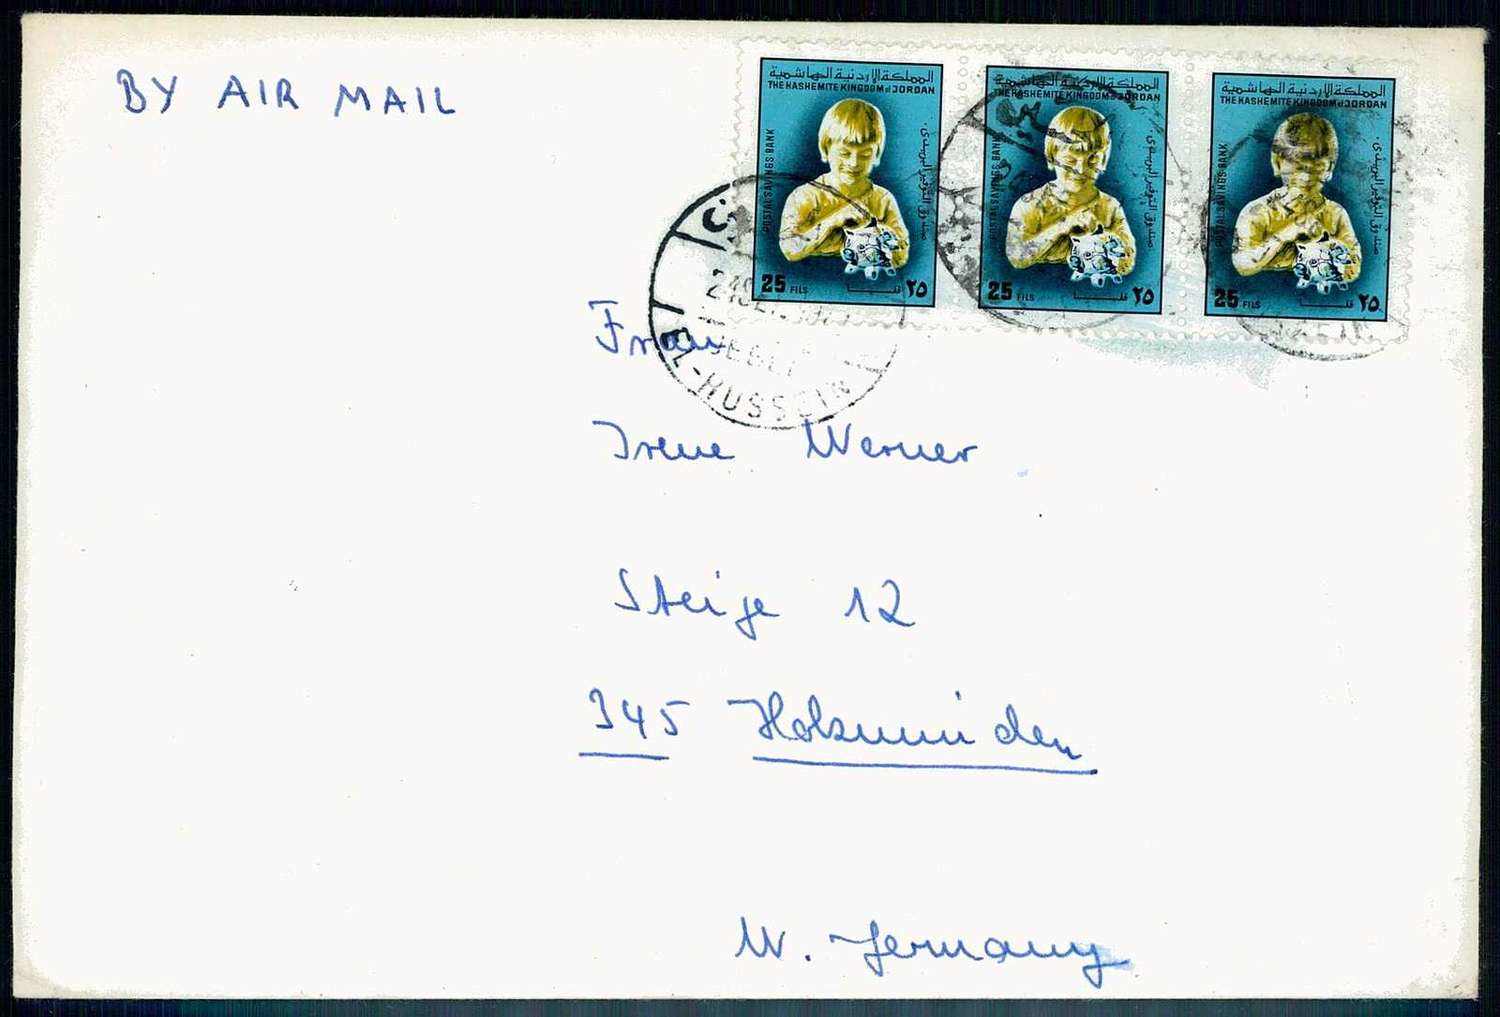 BY AIR MAIL
المملكة الاردنية الهاشمية
THE HASHEMITE KINGDOM of JORDAN
POSTAL SAVINGS BANK
صندوق التوفير البريدي
25 FILS
٢٥ فلسا
المملكة الاردنية الهاشمية
THE HASHEMITE KINGDOM of JORDAN
POSTAL SAVINGS BANK
صندوق التوفير البريدي
25 FILS
٢٥ فلسا
المملكة الاردنية الهاشمية
THE HASHEMITE KINGDOM of JORDAN
POSTAL SAVINGS BANK
صندوق التوفير البريدي
25 FILS
٢٥ فلسا
EL-HUSSEIN
Frau
Irene Werner
Steige 12
345 Holzminden
W. Germany